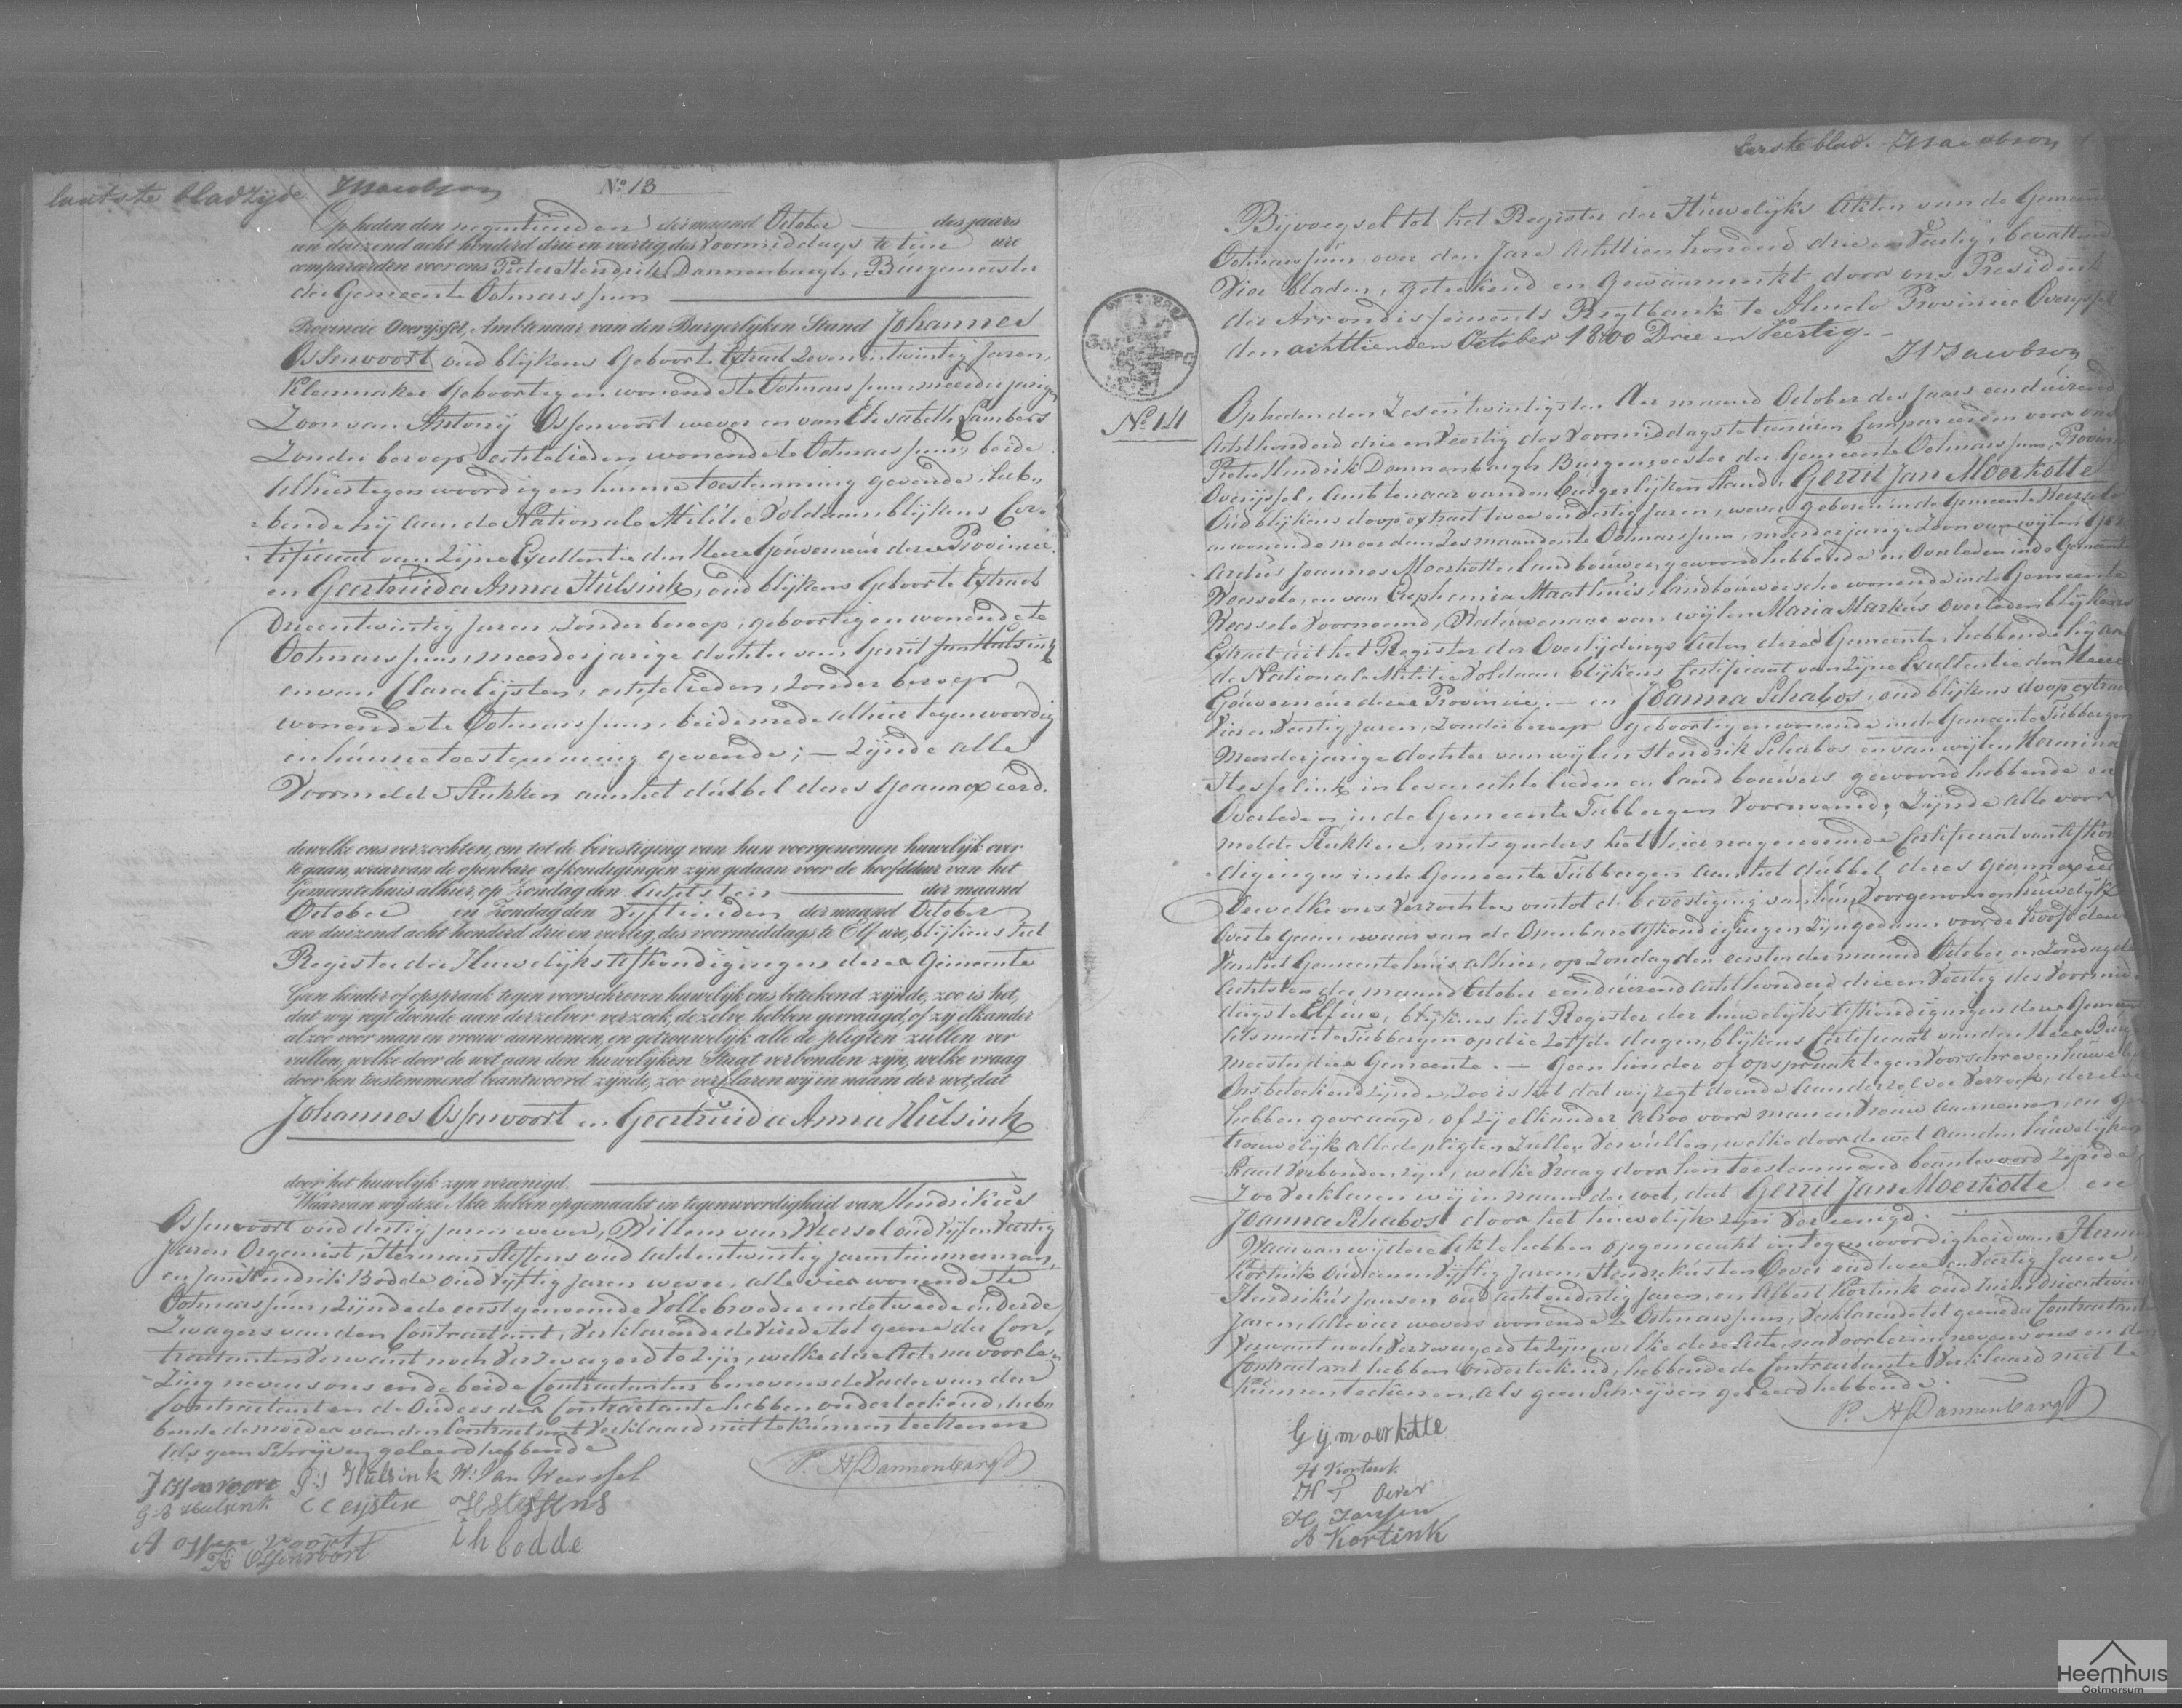 laatste bladzijde HJacobson
No. 13
Op heden den negentienden der maand October des jaars
een duizend acht honderd drie en veertig, des Voormiddags te tien ure
compareerden voor ons Pieter Hendrik Dannenbargh, Burgemeester
der Gemeente Ootmarssum
Provincie Overijssel, Ambtenaar van den Burgerlijken Stand Johannes
Ossenvoort oud blijkens Geboorte Extract Zevenentwintig Jaren,
Kleermaker Geboortig en wonende te Ootmarssum, meerderjarige
Zoon van Antony Ossenvoort wever en van Elisabeth Lambers
Zonder beroep echtelieden wonende te Ootmarssum, beide
Alhier tegenwoordig en hunne toestemming gevende, heb„
bende hij aan de Nationale Militie Voldaan blijkens Cer„
tificaat van Zijne Excellentie den Heere Gouverneur dezer Provincie.
en Geertruida Anna Hulsink, oud blijkens Geboorte Extract
Drieentwintig Jaren, Zonder beroep, geboortig en wonende te
Ootmarssum, meerderjarige dochter van Gerrit Jan Hulsink
en van Clara Eijsten, echtelieden, Zonder beroep
wonende te Ootmarssum, beide mede Alhier tegenwoordig
en hunne toestemming gevende; — Zijnde alle
Voormelde Stukken aan het dubbel dezes Geannexeerd.
dewelke ons verzochten, om tot de bevestiging van hun voorgenomen huwelijk over
te gaan, waarvan de openbare afkondigingen zijn gedaan voor de hoofddeur van het
Gemeentehuis alhier, op Zondag den Achtsten der maand
October en Zondag den Vijftienden der maand October
een duizend acht honderd drie en veertig, des voormiddags te Elf ure, blijkens het
Register der Huwelijks Afkondigingen dezer Gemeente
Geen hinder of opspraak tegen voorschreven huwelijk ons bekend zijnde, zoo is het,
dat wij regt doende aan derzelver verzoek, dezelve hebben gevraagd, of zij elkander
alzoo voor man en vrouw aannemen, en getrouwelijk alle de pligten zullen ver
vullen, welke door de wet aan den huwelijken Staat verbonden zijn, welke vraag
door hen toestemmend beantwoord zijnde, zoo verklaren wij in naam der wet, dat
Johannes Ossenvoort en Geertruida Anna Hulsink
door het huwelijk zijn vereenigd.
Waarvan wij deze Akte hebben opgemaakt in tegenwoordigheid van Hendrikus
Ossenvoort oud dertig jaren wever, Willem van Wersel oud Vijfenveertig
Jaren Organist, Herman Steffens oud achtentwintig jaren timmerman,
en Jan Hendrik Bodde oud Vijftig jaren wever, alle vier wonende te
Ootmarssum, Zijnde de eerstgenoemde Volle broeder en de tweede en derde
Zwagers van den Contractant, Verklarende de Vierde tot geene der Con„
tractanten Verwant noch Verzwagerd te Zijn, welke deze Acte na voorle„
Zing nevens ons en de beide Contractanten benevens de Vader van den
Contractant en de Ouders der Contractante hebben onderteekend, heb„
bende de moeder van den Contractant Verklaard niet te kunnen teekenen
Als geen Schrijven geleerd hebbende
J Ossenvoort G J Hulsink W: Van Werssel P. H Dannenbargh
G A Hulsink C Eysten H Steffens
A Ossenvoort
H Ossenvoort I h bodde
Eerste blad. HJacobson
Bijvoegsel tot het Register der Huwelijks Akten van de Gemeente
Ootmarssum over den Jare Achttienhonderd drie en Veertig, bevattende
Vier bladen, geteekend en Gewaarmerkt door ons President
der Arrondissements Regtbank te Almelo Provincie Overijssel
den achttienden October 1800 Drie en Veertig.
HJacobson
No. 14
Op heden den Zesentwintigsten der maand October des Jaars eenduizend
Achthonderd drie en Veertig des Voormiddags te tien uren Compareerden voor ons
Pieter Hendrik Dannenbargh Burgemeester der Gemeente Ootmarssum, Provincie
Overijssel, Ambtenaar van den burgerlijken Stand, Gerrit Jan Moerkotte
Oud blijkens doopextract twee en dertig Jaren, wever geboren in de Gemeente Weerselo
en wonende meer dan Zes maanden te Ootmarssum, meerderjarige Zoon van wijlen Ger
ardus Joannes Moerkotte, landbouwer, gewoond hebbende en Overleden in de Gemeente
Weerselo, en van Euphemia Maathuis, landbouwersche wonende in de Gemeente
Weerselo Voornoemd, Weduwenaar van wijlen Maria Markus overleden blijkens
Extract uit het Register der Overlijdings Acten dezer Gemeente, hebbende hij aan
de Nationale Militie Voldaan blijkens Certificaat van Zijne Excellentie den Heere
Gouverneur dezer Provincie. — en Joanna Schabos, oud blijkens doopextract
Vier en Veertig Jaren, Zonder beroep geboortig en wonende in de Gemeente Tubbergen
Meerderjarige dochter van wijlen Hendrik Schabos en van wijlen Hermina
Hesselink in leven echtelieden en landbouwers gewoond hebbende en
Overleden in de Gemeente Tubbergen Voornoemd, Zijnde alle voor
melde Stukken, mitsgaders het hier nagenoemde Certificaat van Afkon
digingen in de Gemeente Tubbergen aan het dubbel dezes geannexeerd
Dewelke ons Verzochten om tot de bevestiging van hun Voorgenomen huwelijk
over te gaan waarvan de Openbare Afkondigingen Zijn gedaan voor de hoofddeur
van het Gemeentehuis alhier, op Zondag den eersten der maand October en Zondag den
Achtsten der maand October eenduizend Achthonderd drie en Veertig des Voormid„
dags te Elf ure, blijkens het Register der huwelijks Afkondigingen dezer Gemeente
Alsmede te Tubbergen op die Zelfde dagen, blijkens Certificaat van den Heer Burge
meester dier Gemeente. — Geen hinder of opspraak tegen Voorschreven huwelijk
Ons bekend Zijnde, Zoo is het dat wij regt doende aan derzelver Verzoek, dezelve
hebben gevraagd, of Zij elkander alzoo voor man en Vrouw Aannemen, en ge
trouwelijk alle de pligten Zullen Vervullen, welke door de wet aan den huwelijken
Staat Verbonden zijn, welke Vraag door hen toestemmend beantwoord Zijnde,
Zoo Verklaren wij in naam der wet, dat Gerrit Jan Moerkotte en
Joanna Schabos door het huwelijk zijn Vereenigd.
Waarvan wij deze Akte hebben opgemaakt in tegenwoordigheid van Herman
Kortink oud eenen Vijftig Jaren, Hendrikus ten Oever oud twee en Veertig Jaren,
Hendrikus Jansen, oud achtendertig Jaren, en Albert Kortink oud drieentwintig
Jaren, Alle vier wevers wonende te Ootmarssum, Verklarende tot geene der Contractanten
Verwant noch Verzwagerd te Zijn, welke deze Acte na Voorlezing nevens ons en den
Contractant hebben Onderteekend, hebbende de Contractante Verklaard niet te
kunnen teekenen, als geen Schrijven geleerd hebbende.
P. H Dannenbargh
G J moerkotte
H Kortink
H T Oever
H Jansen
A Kortink
Heemhuis
Ootmarsum